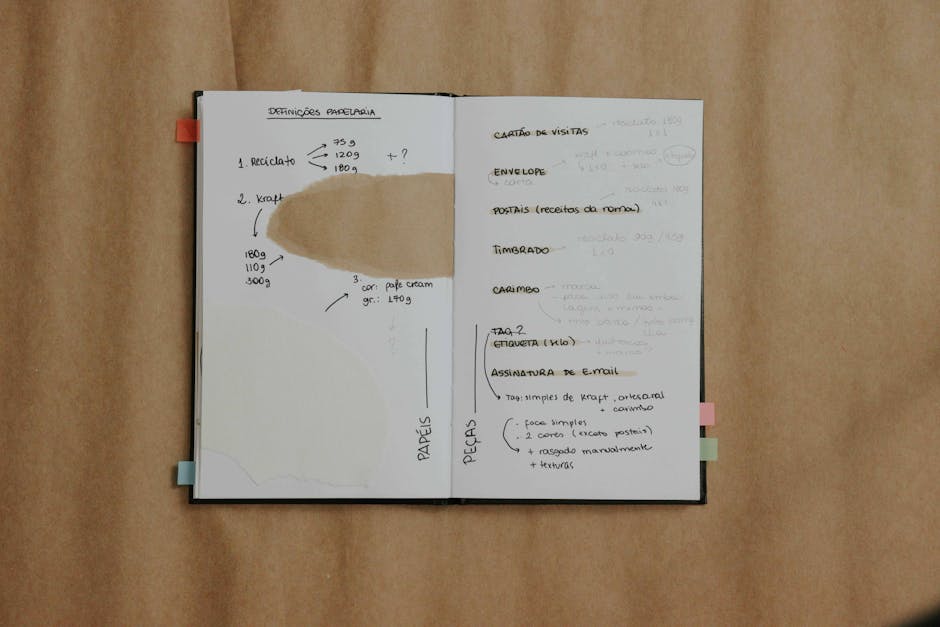 DEFINIÇÕES PAPELARIA
1. Reciclato
75g
120g
180g
+ ?
2. Kraft
180g
110g
300g
3.
cor: pafe cream
gr.: 170g
?
PAPÉIS
PEÇAS
CARTÃO DE VISITAS
reciclato 180g
ENVELOPE
kraft + carimbo
carta
POSTAIS (receitas da noma)
reciclato 180g
4x1
TIMBRADO
reciclato 90g / 75g
1x0
CARIMBO
marca
TAG?
ETIQUETA (selo)
ASSINATURA DE E.mail
Tag: simples de kraft, artesanal
+ carimbo
- faca simples
- 2 cores (exceto postais)
+ rasgado manualmente
+ texturas